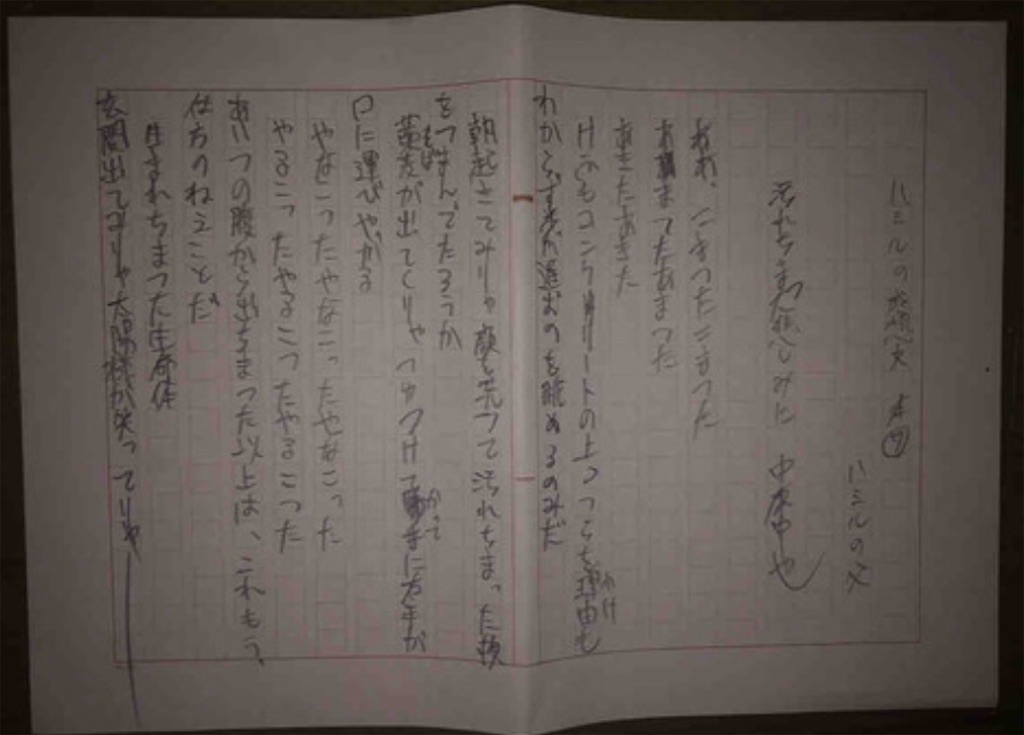 ハミルの
ハミルの父
汚れちまった悲しみに　中原中也
ああ、こまったこまった
あきたあきた
けふもコンクリートの上つつらを理由も
わけ
わからず が進むのを眺めるのみだ
朝起きてみりゃ顔も洗って汚れちまった
をつまんでたろうか
蕎麦が出てくりゃつゆつけて勝手に左手が
そば
かって
口に運びやがる
やなこったやなこったやなこった
やるこったやるこったやるこった
あいつの腹から出ちまった以上は、これもう、
仕方のねえことだ
生まれちまった生命体
玄関出てみりゃ太陽様が笑ってりゃ――